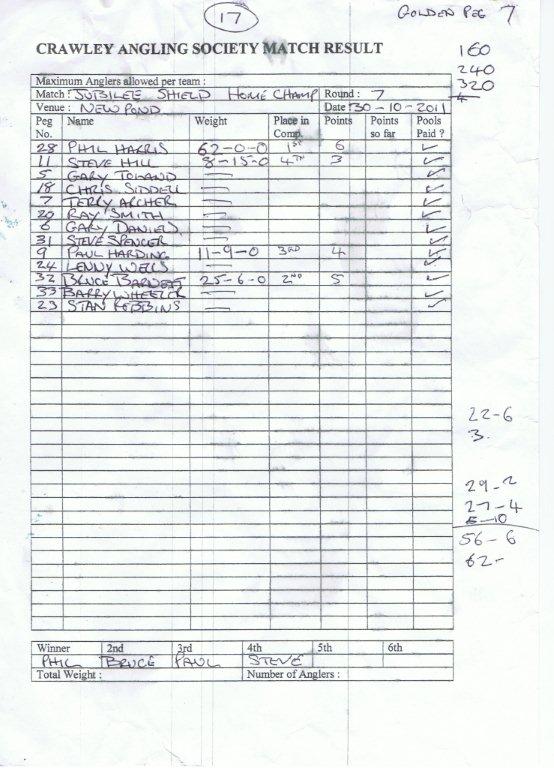 17
GOLDEN PEG 7
CRAWLEY ANGLING SOCIETY MATCH RESULT
160
240
320
Maximum Anglers allowed per team :
Match : JUBILEE SHIELD HOME CHAMP Round : 7
Venue : NEW POND Date : 30-10-2011
Peg No. Name Weight Place in Comp. Points Points so far Pools Paid ?
28 PHIL HARRIS 62-0-0 1ST 6 ✓
11 STEVE HILL 8-15-0 4TH 3 ✓
5 GARY TOLAND — ✓
18 CHRIS SIDDELL — ✓
7 TERRY ARCHER — ✓
20 RAY SMITH — ✓
6 GARY DANIELS — ✓
31 STEVE SPENCER — ✓
9 PAUL HARDING 11-9-0 3RD 4 ✓
24 LENNY WELLS — ✓
32 BRUCE BARNETT 25-6-0 2ND 5 ✓
33 BARRY WHEELER — ✓
23 STAN ROBBINS — ✓
22-6
3.
29-2
27-4
56-6
62-
Winner 2nd 3rd 4th 5th 6th
PHIL BRUCE PAUL STEVE
Total Weight : Number of Anglers :